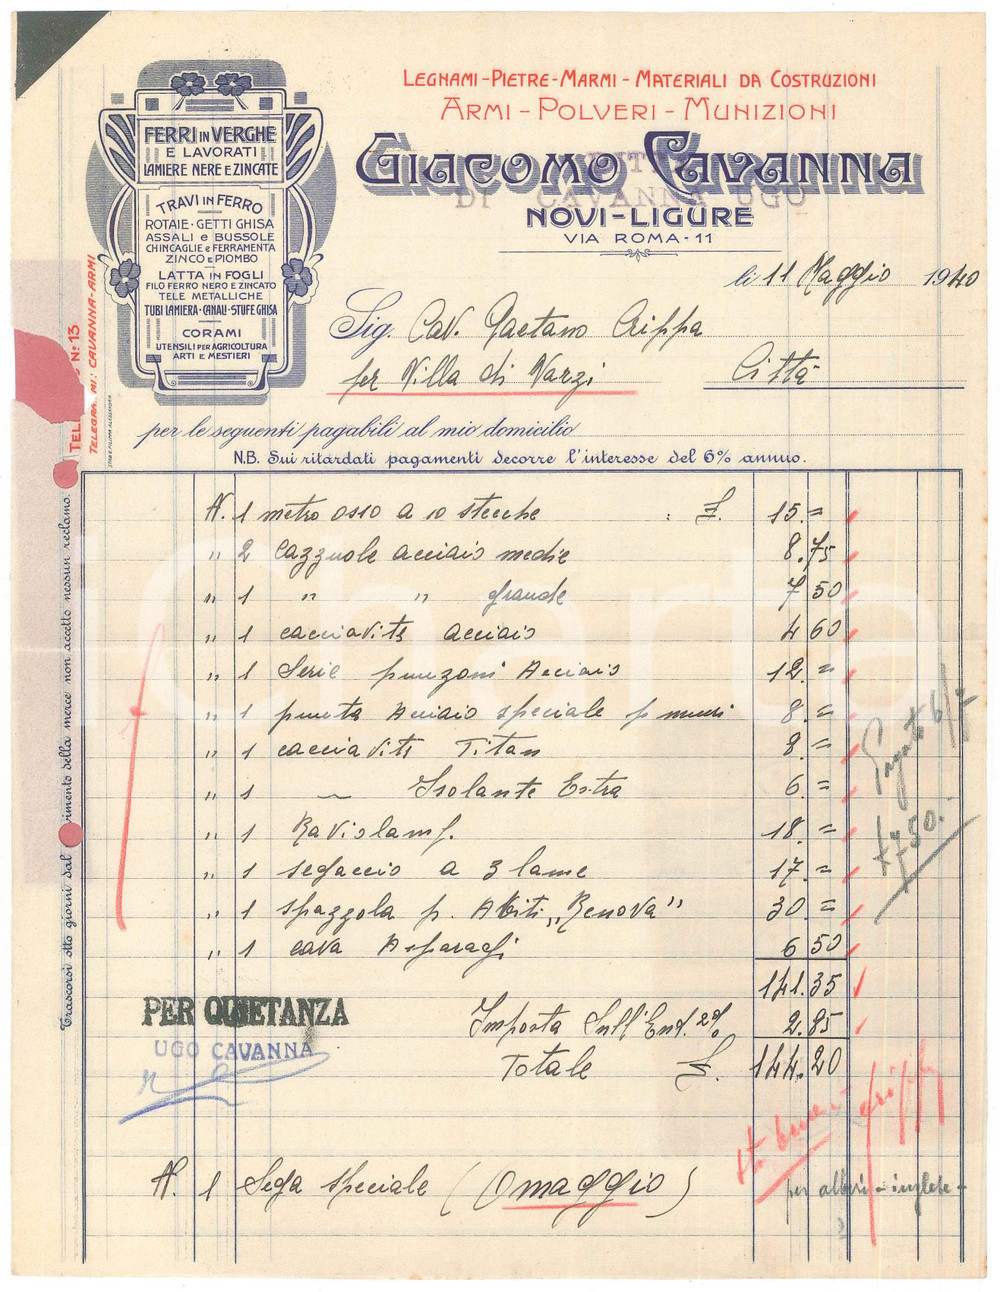 LEGNAMI-PIETRE-MARMI-MATERIALI DA COSTRUZIONI
ARMI-POLVERI-MUNIZIONI
GIACOMO CAVANNA
DITTA
DI CAVANNA UGO
NOVI-LIGURE
VIA ROMA-11
FERRI IN VERGHE
E LAVORATI
LAMIERE NERE E ZINCATE
TRAVI IN FERRO
ROTAIE-GETTI GHISA
ASSALI e BUSSOLE
CHINCAGLIE e FERRAMENTA
ZINCO e PIOMBO
LATTA IN FOGLI
FILO FERRO NERO E ZINCATO
TELE METALLICHE
TUBI LAMIERA-CANALI-STUFE GHISA
CORAMI
UTENSILI PER AGRICOLTURA
ARTI E MESTIERI
TELE Nº: 13
TELEGRAMMI: CAVANNA-ARMI
li 11 Maggio 1940
Sig. Cav. Gaetano Crippa
per Villa di Varzi Città
per le seguenti pagabili al mio domicilio
N.B. Sui ritardati pagamenti decorre l'interesse del 6% annuo.
Trascorsi otto giorni dal vimento della merce non accetto nessun reclamo.
N. 1 metro osso a 10 stecche : £. 15.=
" 2 Cazzuole acciaio medie 8.75
" 1 " " grande 7 50
" 1 cacciavite acciaio 4 60
" 1 Serie punzoni Acciaio 12.=
" 1 punta Acciaio speciale p muri 8.=
" 1 cacciavite Titan 8.=
" 1 ~ Isolante Extra 6.=
" 1 Ravislamp. 18.=
" 1 segaccio a 3 lame 17.=
" 1 spazzola p. Abiti "Renova" 30.=
" 1 cava Asparagi 6 50
141.35
Imposta sull'Ent. 2% 2.85
Totale £. 144.20
Pagato 6/7
PER QUIETANZA
UGO CAVANNA
N. 1 Sega speciale (Omaggio)
per alberi - inglese -
Charta